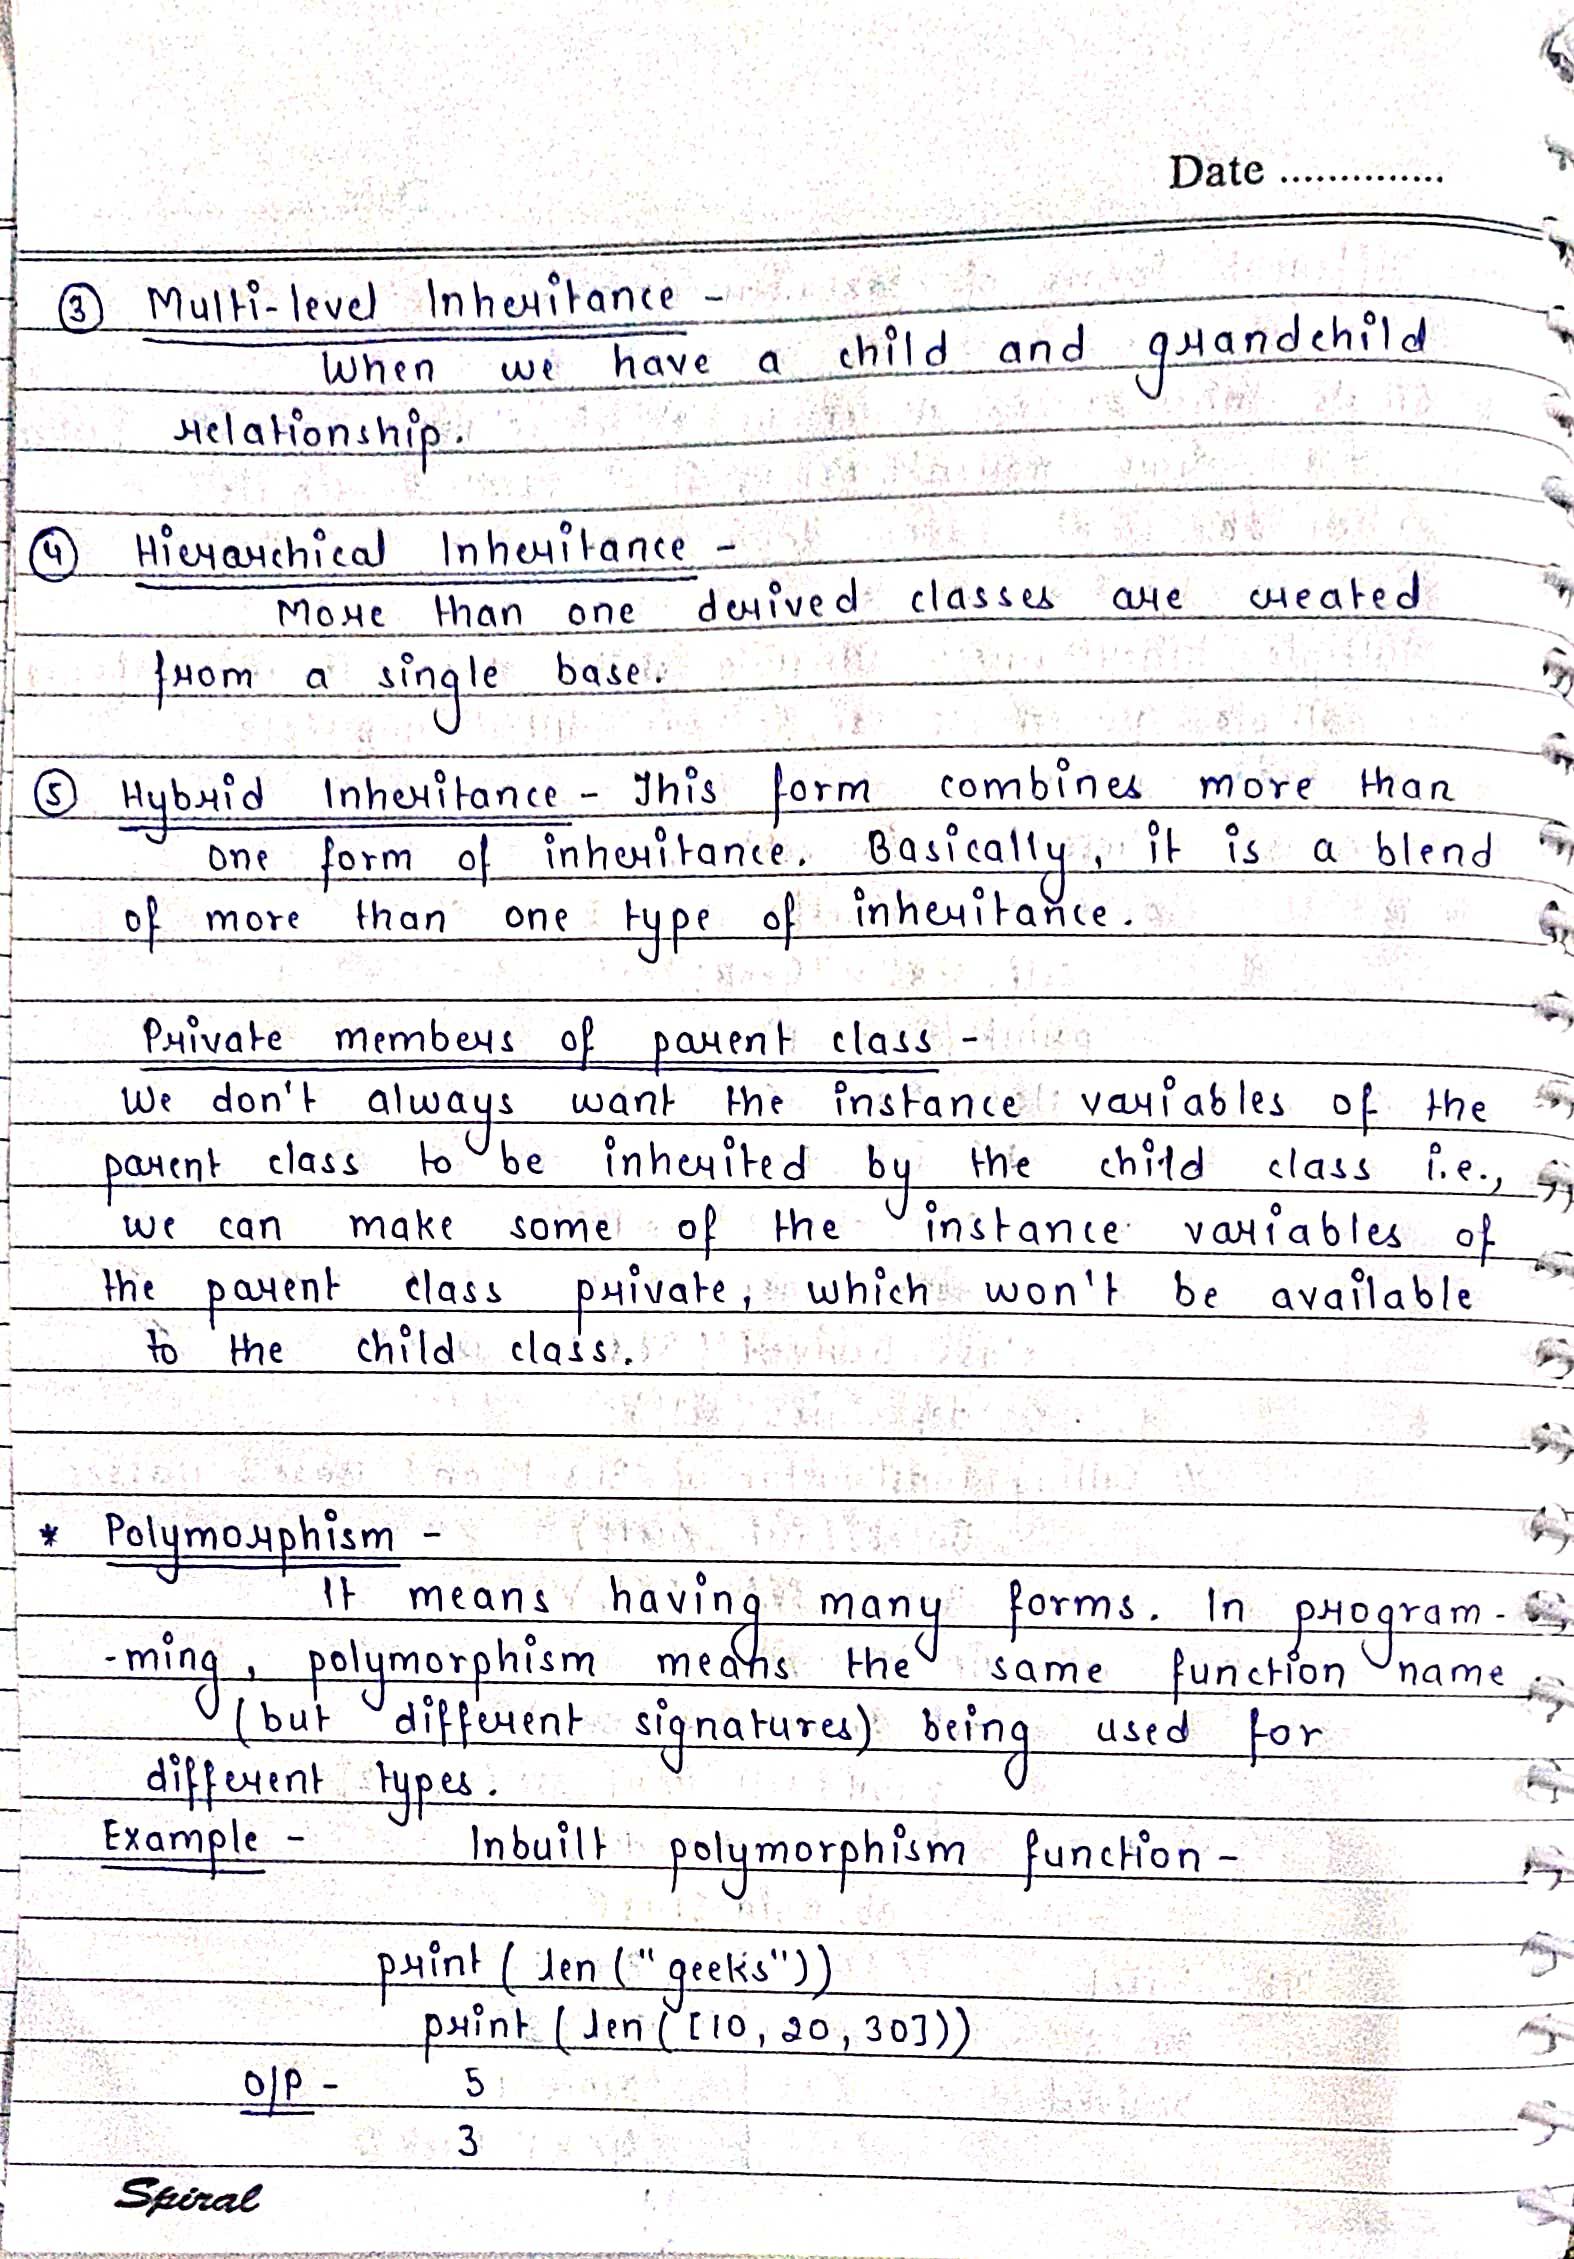 Date ..............
③ Multi-level Inheritance -
When we have a child and grandchild
relationship.
④ Hierarchical Inheritance -
More than one derived classes are created
from a single base.
⑤ Hybrid Inheritance - This form combines more than
one form of inheritance. Basically, it is a blend
of more than one type of inheritance.
Private members of parent class -
We don't always want the instance variables of the
parent class to be inherited by the child class i.e.,
we can make some of the instance variables of
the parent class private, which won't be available
to the child class.
* Polymorphism -
It means having many forms. In program-
-ming, polymorphism means the same function name
(but different signatures) being used for
different types.
Example - Inbuilt polymorphism function -
print ( len ("geeks"))
print ( len ( [10, 20, 30]))
O/P - 5
3
Spiral